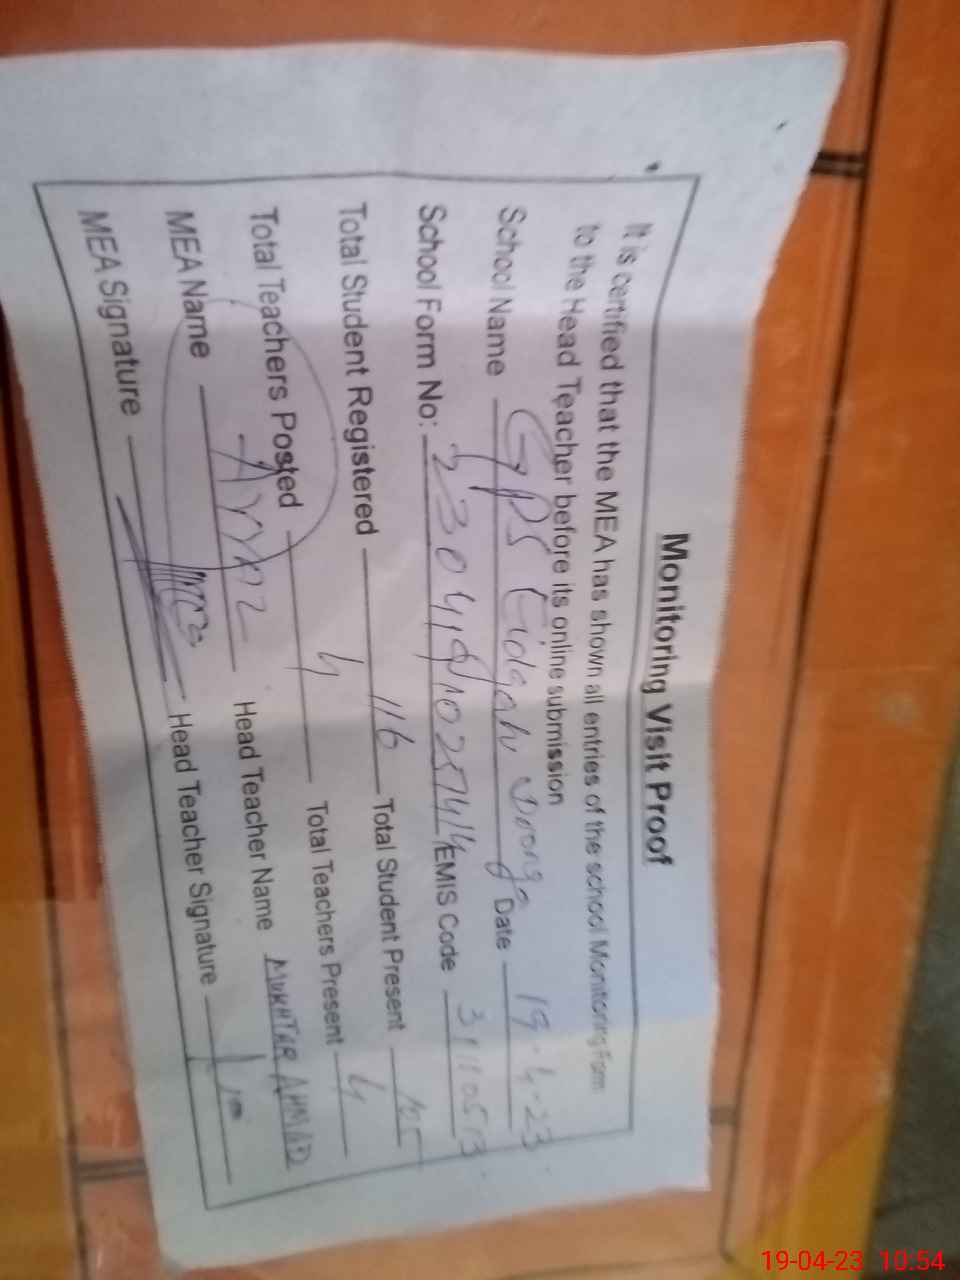 Monitoring Visit Proof
It is certified that the MEA has shown all entries of the school Monitoring Form
to the Head Teacher before its online submission
School Name GPS Eidgah Date 19-4-23
School Form No: EMIS Code
Total Student Registered 116 Total Student Present 105
Total Teachers Posted 4 Total Teachers Present 4
MEA Name Head Teacher Name MUKHTAR AHMAD
MEA Signature Head Teacher Signature
19-04-23 10:54